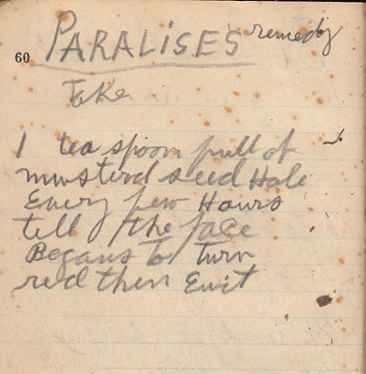 60 PARALISES remedy
Take
1 tea spoon full of
musterd seed Hole
Every few Hours
tell the face
Begans to turn
red then Quit